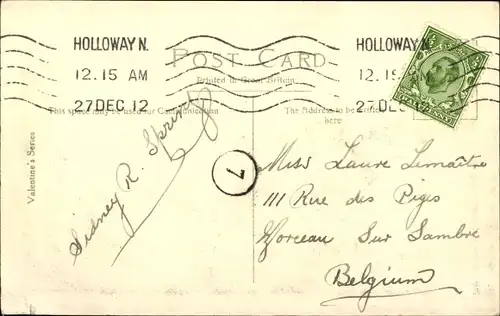 HOLLOWAY N.
12.15 AM
27 DEC 12
HOLLOWAY N.
12.15
27 DEC
POST CARD
Printed in Great Britain.
This space may be used for Communication
The Address to be written
here
Valentine's Series
Sidney R. Sprintz
7
Miss Laure Lemaître
111 Rue des Piges
Morceau Sur Sambre
Belgium